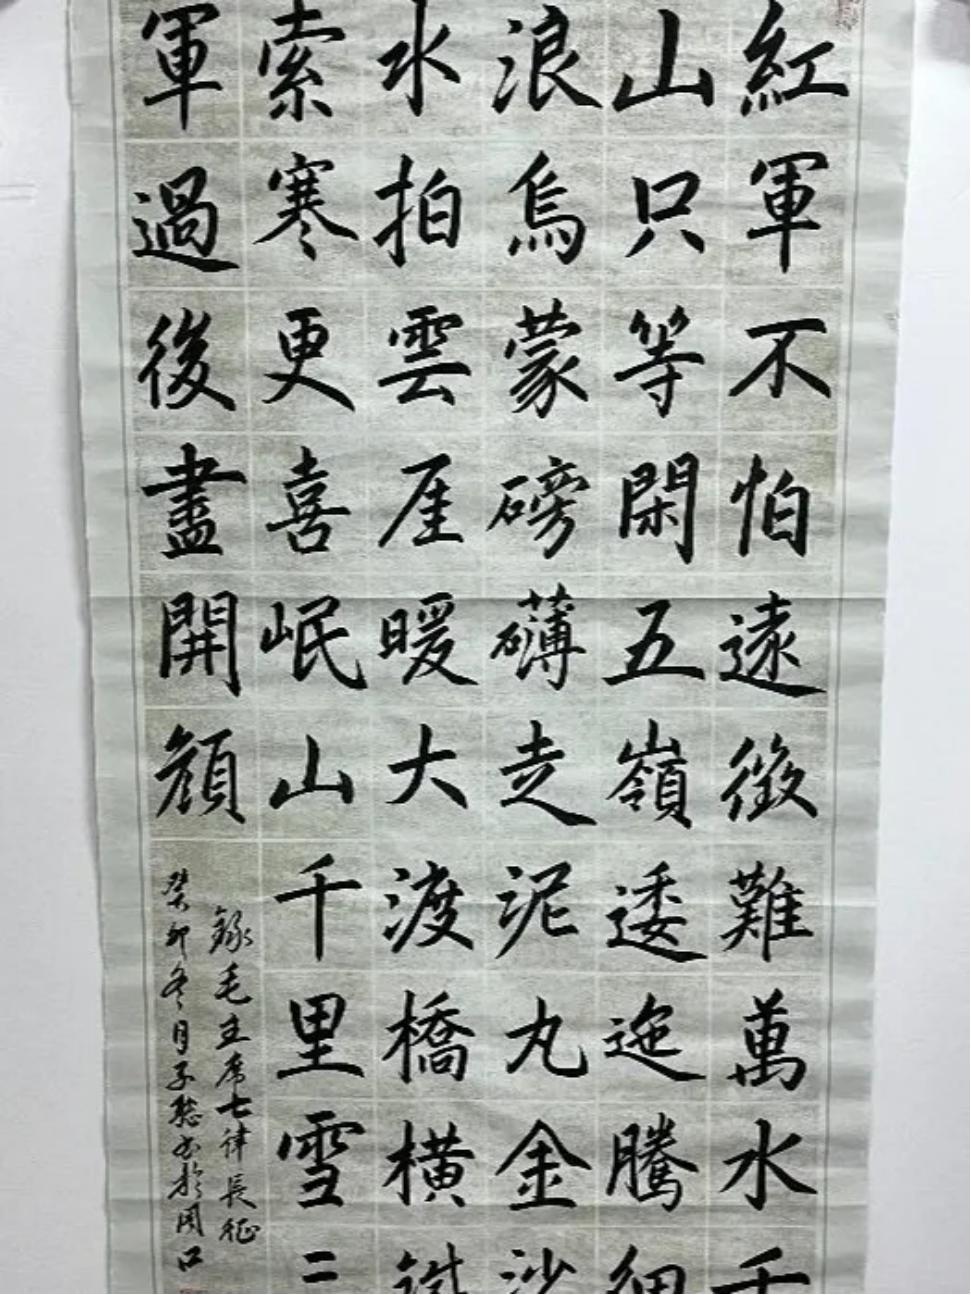 紅軍不怕遠徵難萬水千
山只等閑五嶺逶迤騰細
浪烏蒙磅礴走泥丸金沙
水拍雲厓暖大渡橋橫鐵
索寒更喜岷山千里雪三
軍過後盡開顏
錄毛主席七律長征
癸卯冬月子聪書於周口